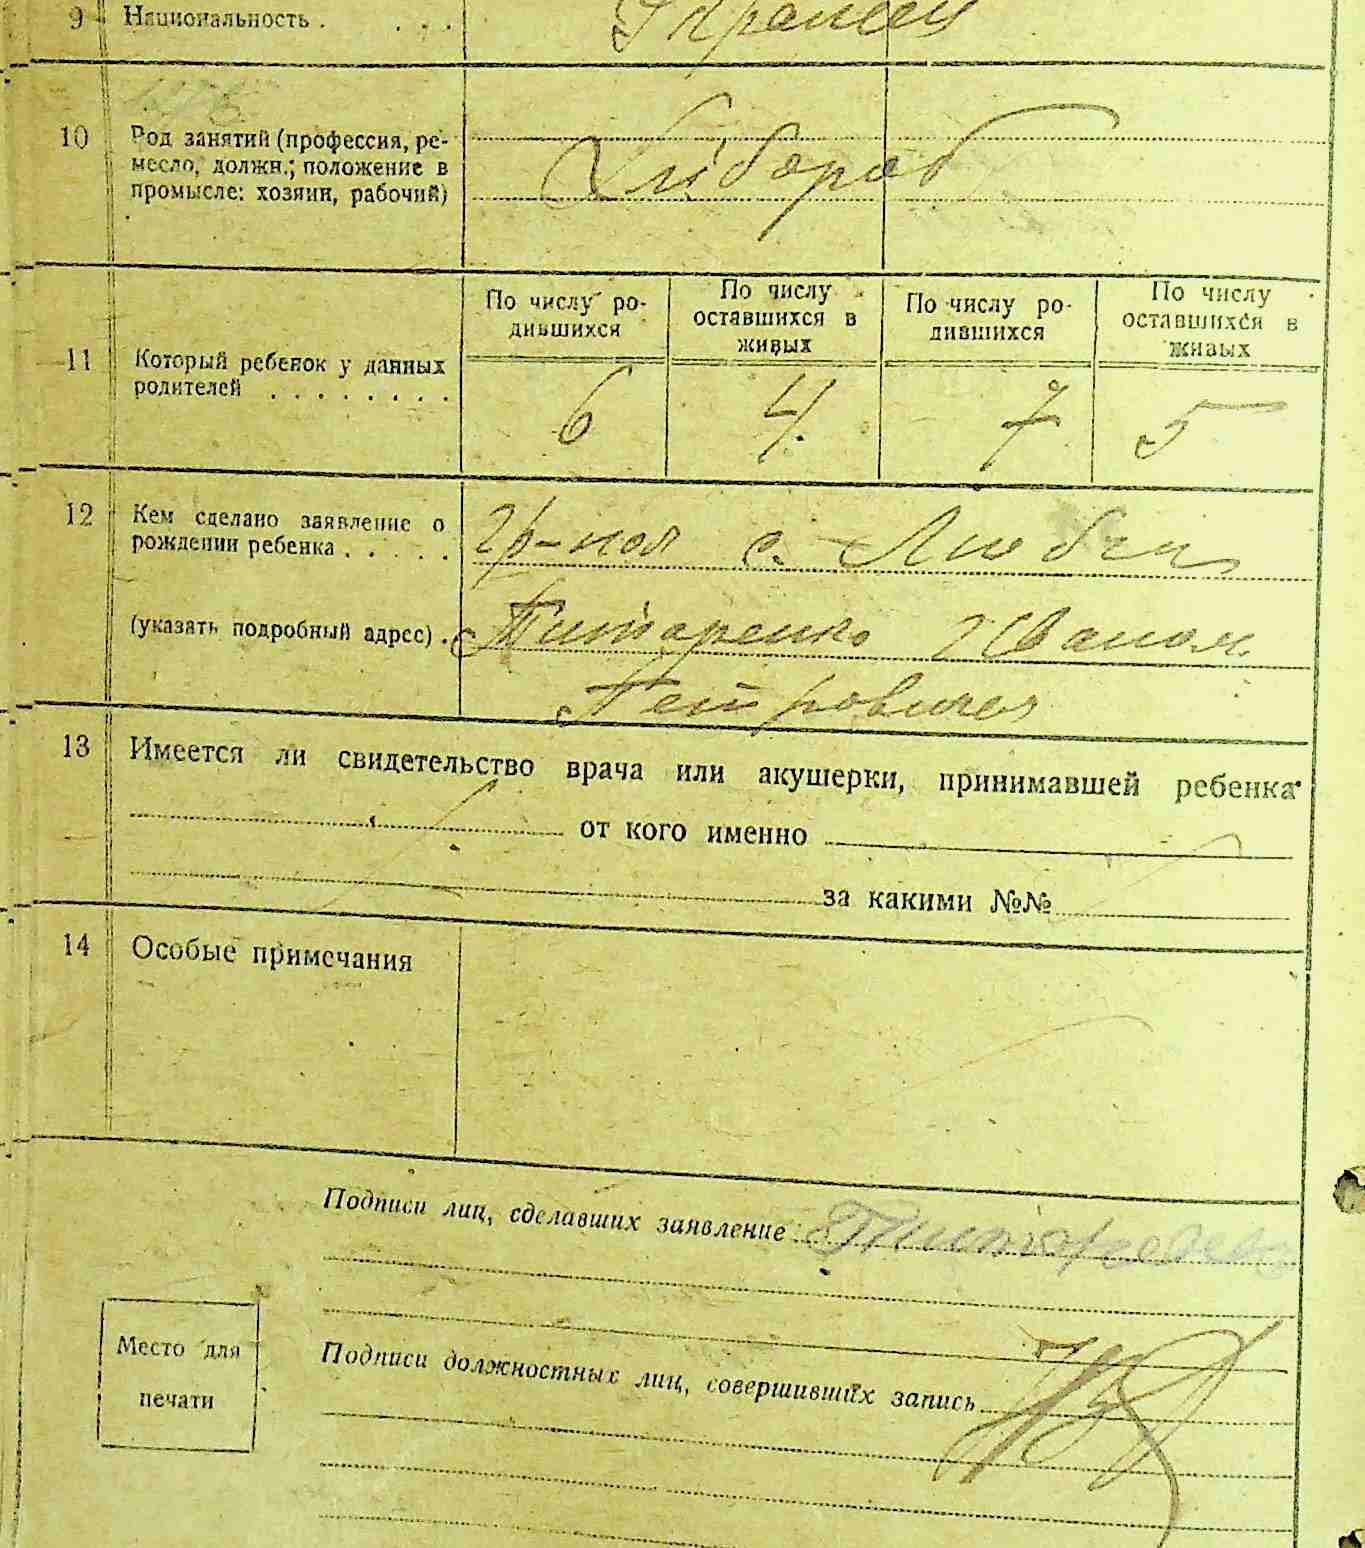 9 Национальность . . . . Украинец
10 Род занятий (профессия, ре-
месло, должн.; положение в
промысле: хозяин, рабочий)
Хлібороб
11 Который ребенок у данных
родителей . . . . . . . .
По числу ро-
дившихся
По числу
оставшихся в
живых
По числу ро-
дившихся
По числу
оставшихся в
живых
6 4. 7 5
12 Кем сделано заявление о
рождении ребенка . . . . .
(указать подробный адрес) .
гр-ном с.
Титаренко Иваном
Петровичем
13 Имеется ли свидетельство врача или акушерки, принимавшей ребенка
от кого именно
за какими №№
14 Особые примечания
Подписи лиц, сделавших заявление
Место для
печати
Подписи должностных лиц, совершивших запись